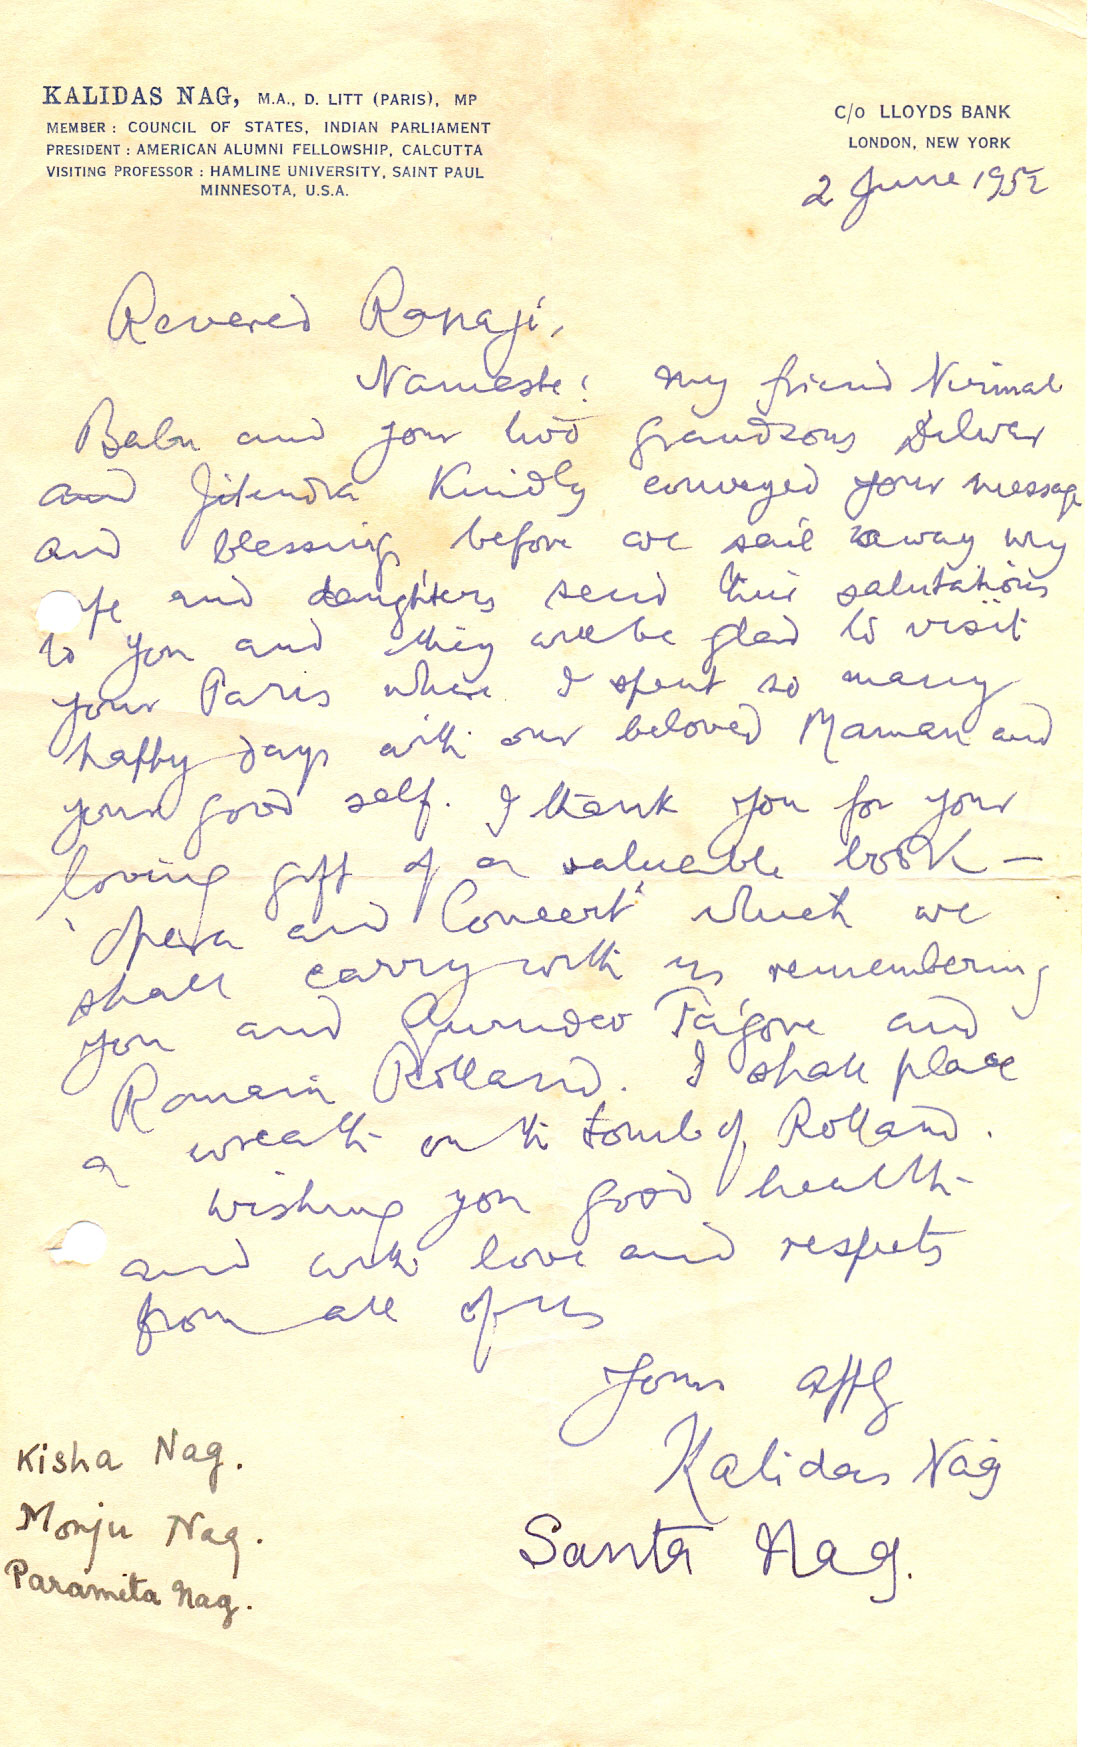 KALIDAS NAG, M.A., D. LITT (PARIS), MP
MEMBER : COUNCIL OF STATES, INDIAN PARLIAMENT
PRESIDENT : AMERICAN ALUMNI FELLOWSHIP, CALCUTTA
VISITING PROFESSOR : HAMLINE UNIVERSITY, SAINT PAUL
MINNESOTA, U.S.A.
C/o LLOYDS BANK
LONDON, NEW YORK
2 June 1952
Revered Ranaji,
Namaste! My friend Nirmal
Babu and your two grandsons Dilwar
and Jitendra Kindly conveyed your message
and blessing, before we sail away my
fe and daughters send their salutations
to you and they will be glad to visit
your Paris where I spent so many
happy days with our beloved Maman and
your good self. I thank you for your
loving gift of a valuable book —
'Opera and Concert' which we
shall carry with us remembering
you and Gurudev Tagore and
Romain Rolland. I shall place
a wreath on th tomb of Rolland.
Wishing you good health
and with love and respects
from all of us
Yours affly
Kalidas Nag
Santa Nag.
Kisha Nag.
Monju Nag.
Paramita Nag.